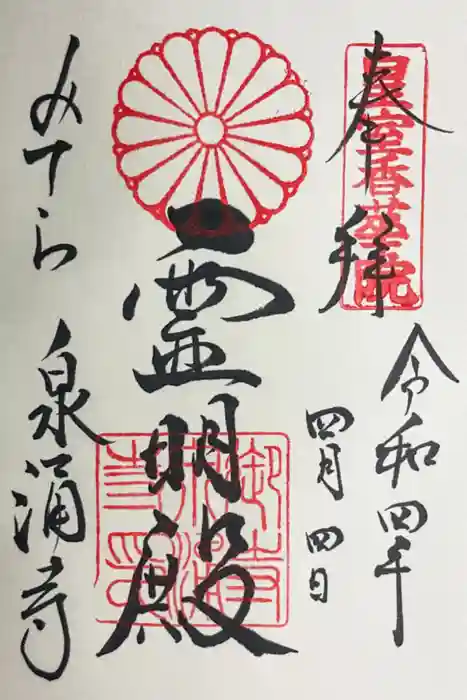 奉拝
皇室香華院
令和四年
四月四日
霊明殿
みてら
泉涌寺